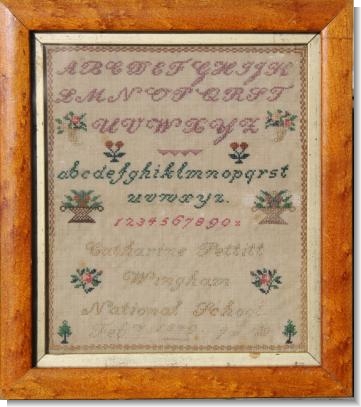 A B C D E F G H I J K
L M N O P Q R S T
U V W X Y Z
a b c d e f g h i j k l m n o p q r s t
u v w x y z .
1 2 3 4 5 6 7 8 9 0
Catharine Pettitt
Wingham
National School